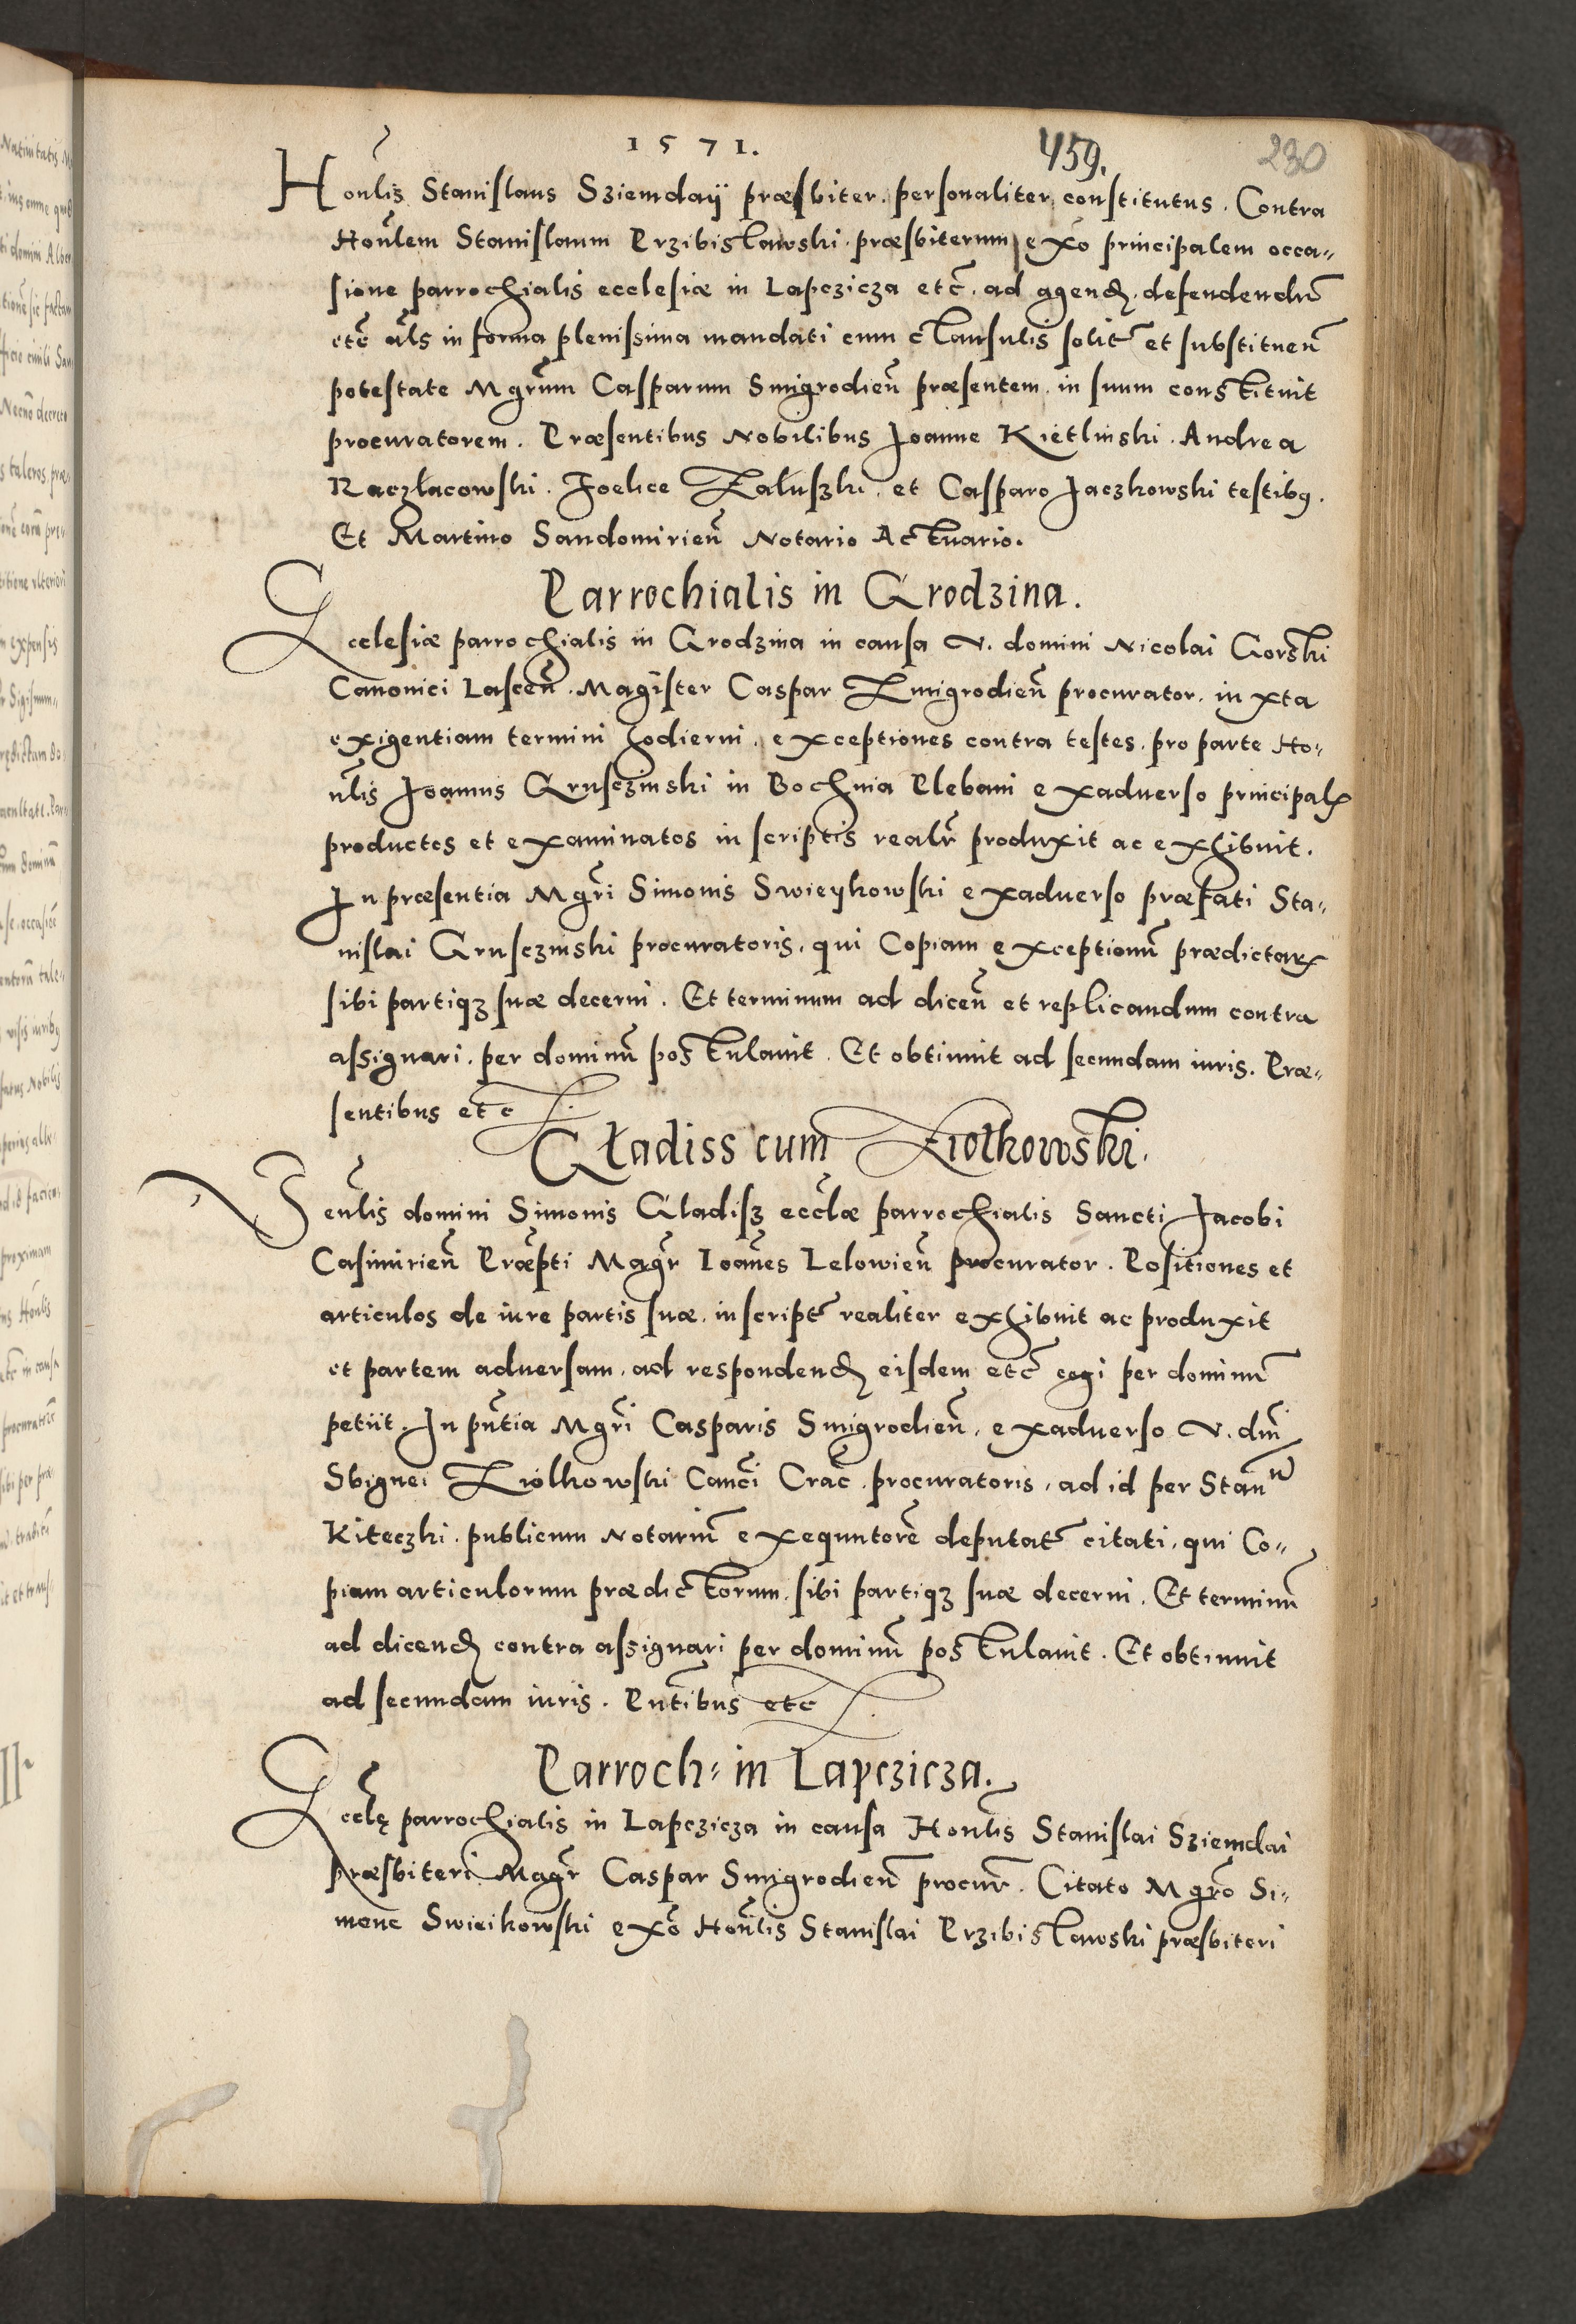 1571. 459. 230
Honlis Stanislaus Sziemdaÿ præsbiter. personaliter constitutus. Contra
Honlem Stanislaum Przibislawski. præsbiterum exo principalem occa-
sione parrochialis ecclesiæ in Lapczicza etc. ad agend. defendendu
etc als in forma plenissima mandati cum clausulis solit et substituen
potestate Mgrum Casparum Smigrodien præsentem in suum constituit
procuratorem. Præsentibus Nobilibus Joanne Kietlinski. Andrea
Raczlacowski. Foelice Zaluszki. et Casparo Jaczkowski testibus.
Et Martino Sandomirien Notario Actuario.
Parrochialis in Grodzina.
Ecclesiæ parrochialis in Grodzina in causa V. domini Nicolai Gorski
Canonici Lascen. Magister Caspar Zmigrodien procurator. iuxta
exigentiam termini hodierni. exceptiones contra testes. pro parte Ho-
nlis Joannis Grusczinski in Bochnia Plebani exaduerso principal
productos et examinatos in scriptis realr produxit ac exhibuit.
In præsentia Mgri Simonis Swieykowski exaduerso præfati Sta-
nislai Grusczinski procuratoris. qui Copiam exceptionu prædictar
sibi partiqz suæ decerni. Et terminum ad dicen et replicandum contra
assignari. per dominu postulauit. Et obtinuit ad secundam iuris. Præ-
sentibus etc
Gładiss cum Ziołkowski.
Venlis domini Simonis Gladisz ecclæ parrochialis Sancti Jacobi
Casimirien Præpti Magr Ioanes Lelowien procurator. Positiones et
articulos de iure partis suæ. in script realiter exhibuit ac produxit
et partem aduersam. ad respondend eisdem etc cogi per dominu
petiit. In pntia Mgri Casparis Smigrodien. exaduerso V. dni
Sbignei Ziolkowski Canci Crac. procuratoris. ad id per Stan
Kiteczki. publicum Notariu exequutore deputat citati. qui Co-
piam articulorum prædictorum. sibi partiqz suæ decerni. Et terminu
ad dicend contra assignari per dominu postulauit. Et obtinuit
ad secundam iuris. Pntibus etc
Parroch: in Lapczicza.
Eccle parrochialis in Lapczicza in causa Honlis Stanislai Sziemdai
præsbiteri Magr Caspar Smigrodien procur. Citato Mgro Si-
mone Swieikowski exo Honlis Stanislai Przibislawski præsbiteri